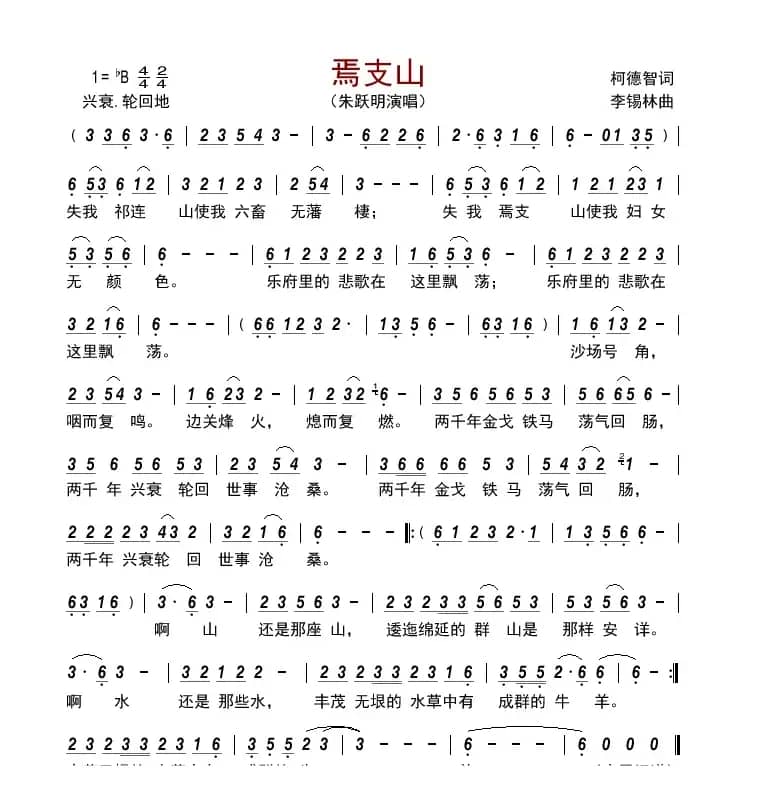 焉支山
1= ♭B 4/4 2/4
柯德智词
兴衰.轮回地
（朱跃明演唱）
李锡林曲
( 3 3 6 3·6 | 2 3 5 4 3 – | 3 – 6 2 2 6 | 2·6 3 1 6 | 6 – 0 1 3 5 ) |
6 5 3 6 1 2 | 3 2 1 2 3 | 2 5 4 3 – | 6 5 3 6 1 2 | 1 2 1 2 3 1 |
失我 祁连 山使我 六畜 无藩 棲； 失 我 焉支 山使我 妇 女
5 3 5 6 | 6 – – – | 6 1 2 3 2 2 3 | 1 6 5 3 6 – | 6 1 2 3 2 2 3 |
无 颜 色。 乐府里的 悲歌在 这里飘 荡； 乐府里的 悲歌在
3 2 1 6 | 6 – – – | ( 6 6 1 2 3 2· | 1 3 5 6 – | 6 3 1 6 ) | 1 6 1 3 2 – |
这里飘 荡。 沙场号 角，
2 3 5 4 3 – | 1 6 2 3 2 – | 1 2 3 2 6· | 3 5 6 5 6 5 3 | 5 6 6 5 6 – |
咽而复 鸣。 边关烽 火， 熄而复 燃。 两千年金戈 铁马 荡气回 肠，
3 5 6 5 6 5 3 | 2 3 5 4 3 – | 3 6 6 6 6 5 3 | 5 4 3 2 1 – |
两千 年 兴衰 轮回 世事 沧 桑。 两千年 金戈 铁 马 荡气 回 肠，
2 2 2 2 3 4 3 2 | 3 2 1 6 | 6 – – – ‖: ( 6 1 2 3 2·1 | 1 3 5 6 6 – |
两千年 兴衰轮 回 世事 沧 桑。
6 3 1 6 ) | 3·6 3 – | 2 3 5 6 3 – | 2 3 2 3 3 5 6 | 5 5 6 3 – |
啊 山 还是那座 山， 逶迤绵延的 群 山是 那样 安 详。
3·6 3 – | 3 2 1 2 2 – | 2 3 2 3 3 2 3 1 6 | 3 5 5 2·6 | 6 – :‖
啊 水 还是 那些水， 丰茂 无垠的 水草中有 成群的 牛 羊。
2 3 2 3 3 2 3 1 6 | 3 5 5 2 3 | 3 – – – | 6 – – – | 6 0 0 0 ‖